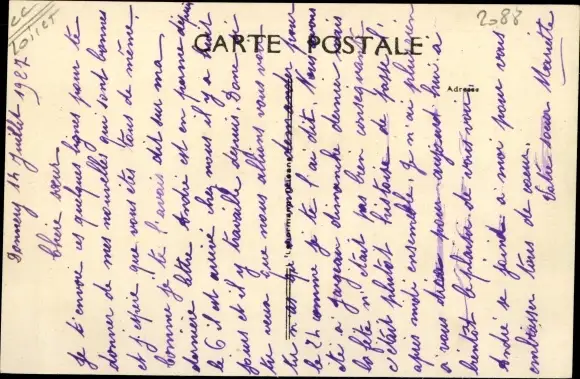 CARTE POSTALE
Adresse
2088
cc
Loiret
Donnery 14 Juillet 1927
Chère sœur
Je t'envoie ces quelques lignes pour te
donner de mes nouvelles qui sont bonnes
et j'espère que vous êtes tous de même.
comme je te l'avais dit sur ma
dernière lettre André est en panne depuis
le 6 il est arrivé chez nous il y a huit
jours et il y travaille depuis. Donc
tu veras que nous allons vous voir
si ce pour
le 24 comme je te l'ai dit. Nous avons
été à Jargeau dimanche dernier mais
la fête n'était pas bien conséquente
c'était plutôt histoire de passer l'
après midi ensemble. Je n'ai plus rien
à vous dire pour aujourd'hui a
bientôt le plaisir de vous voir
André se joint a moi pour vous
embrasser tous de cœur.
Votre sœur Mariette